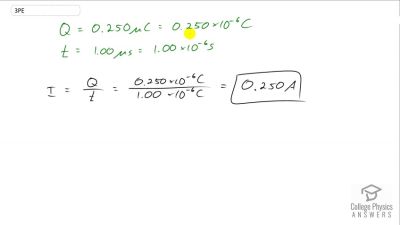 3PE
Q = 0.250 μC = 0.250 × 10⁻⁶ C
t = 1.00 μs = 1.00 × 10⁻⁶ s
I = Q/t = 0.250 × 10⁻⁶ C / 1.00 × 10⁻⁶ C = 0.250 A
College Physics
ANSWERS